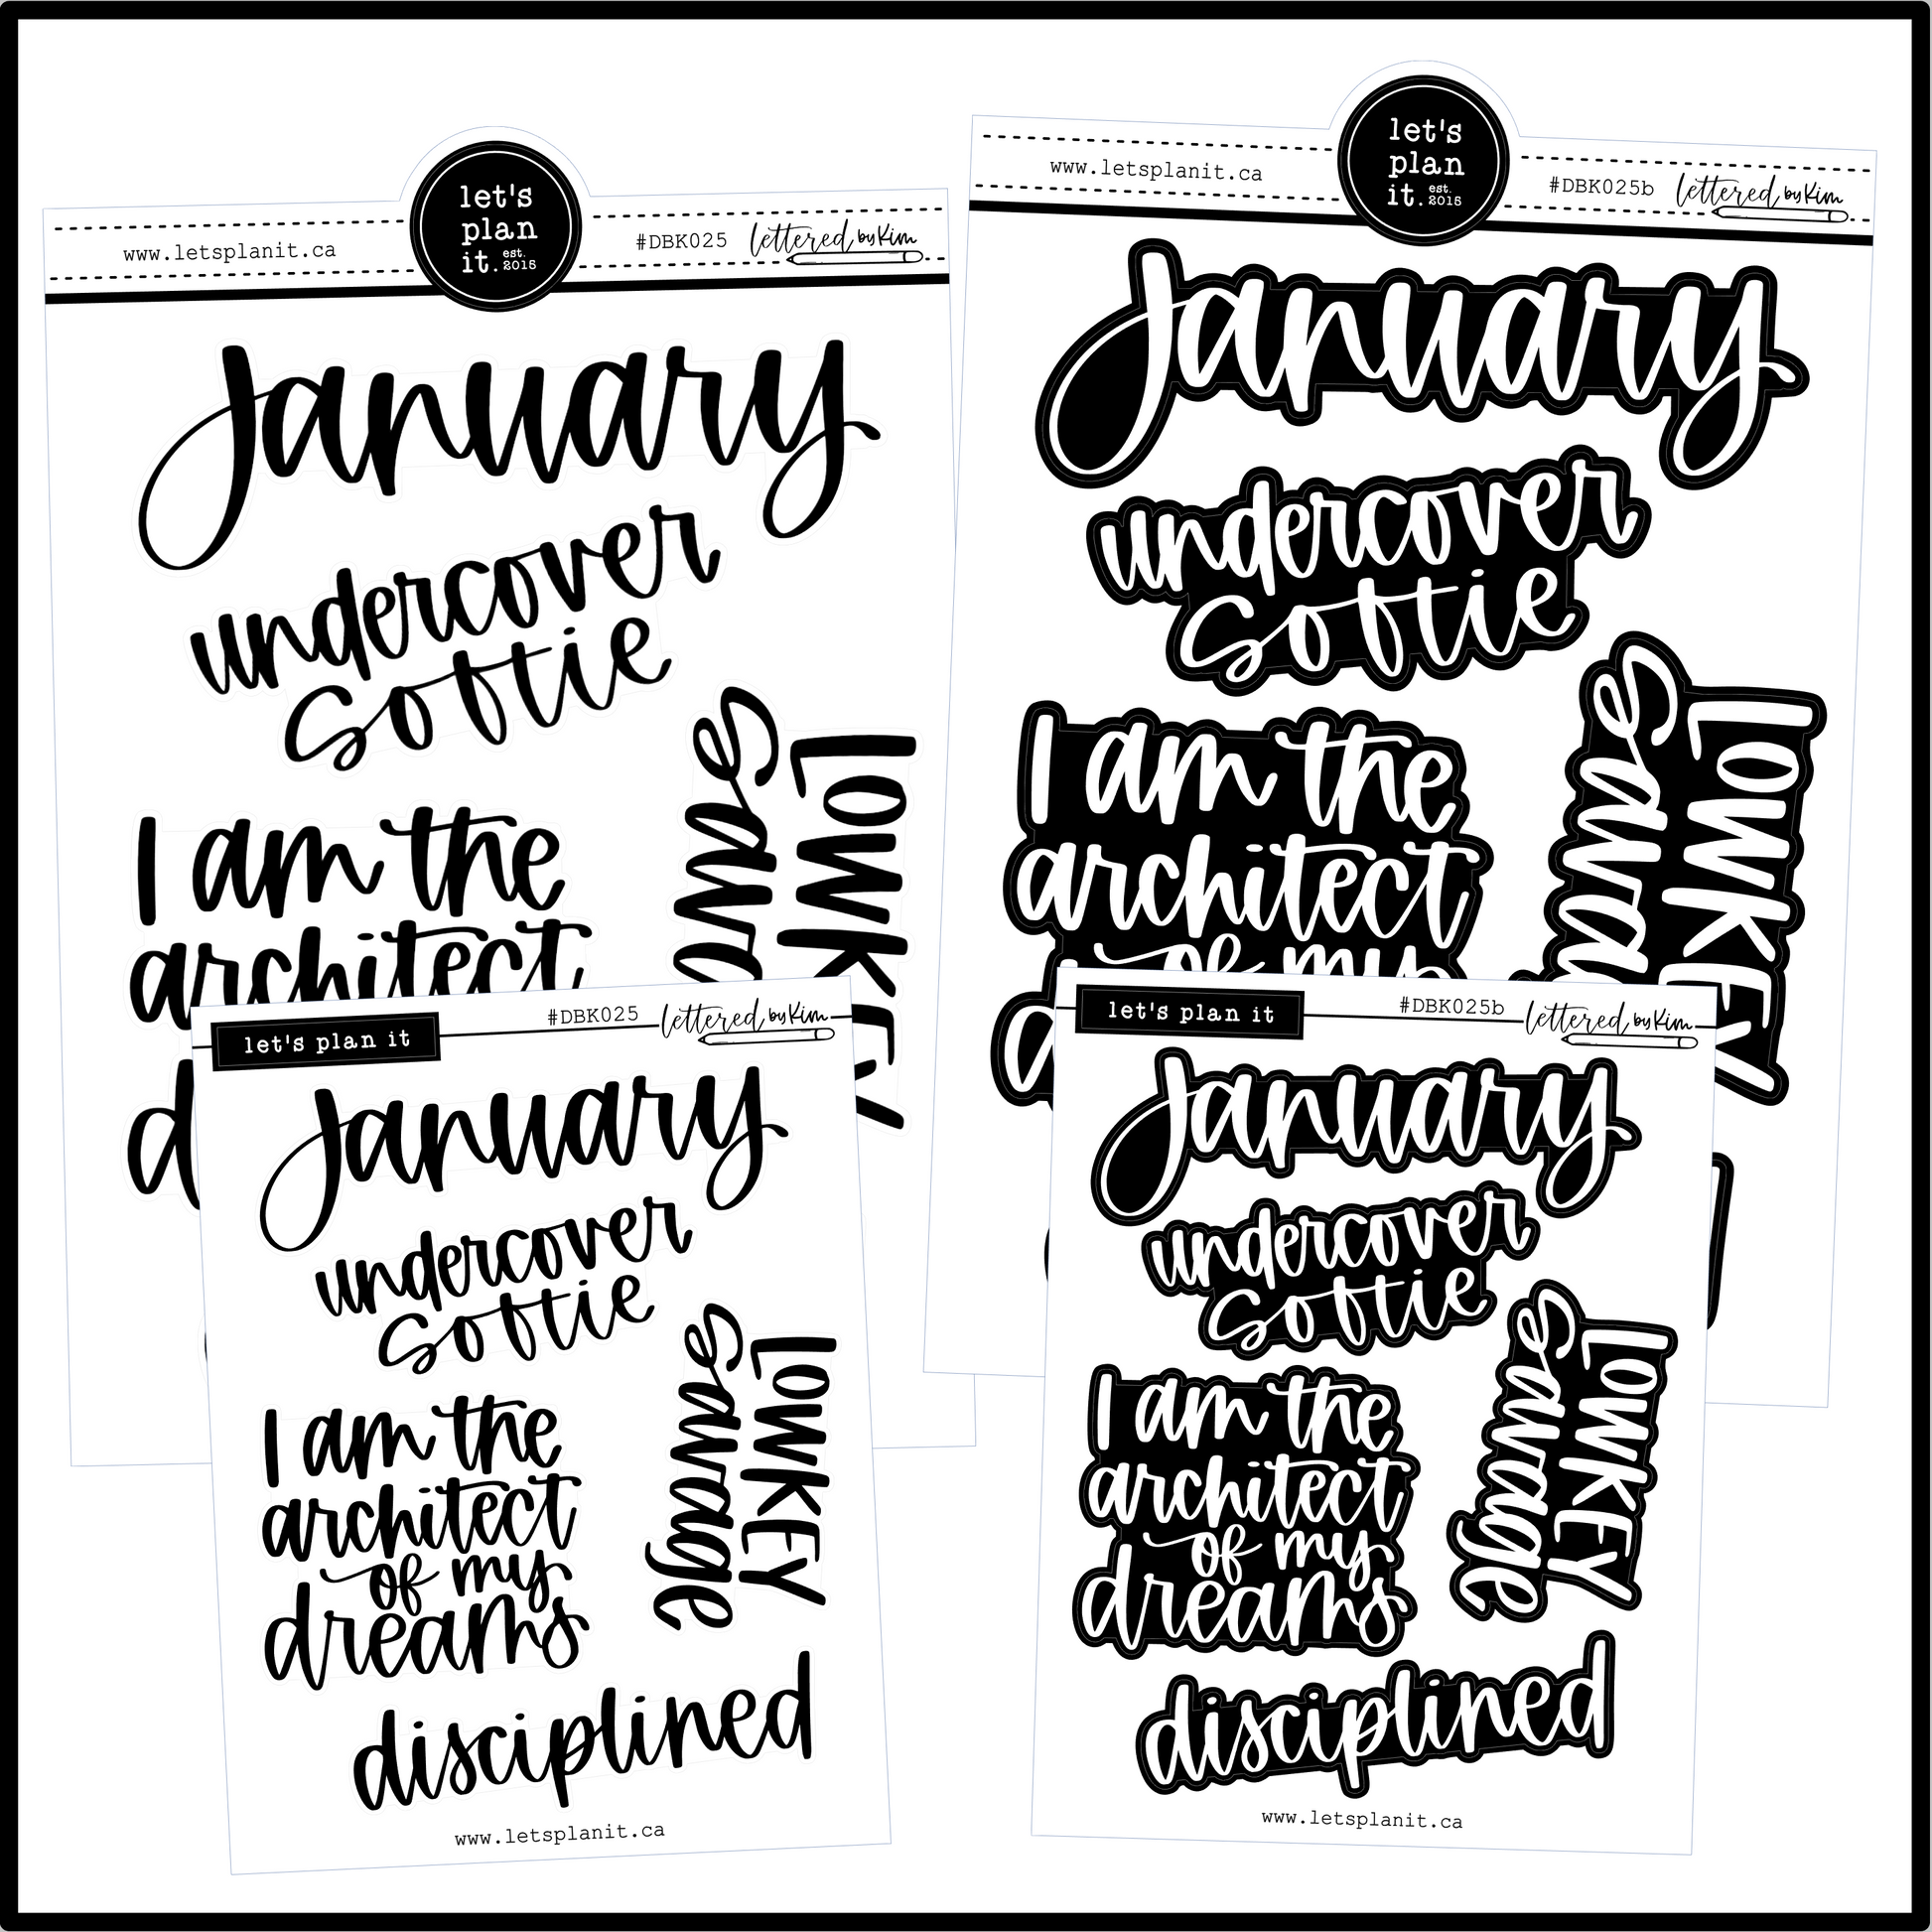 let's
plan
it. est. 2015
www.letsplanit.ca
#DBK025
lettered by Kim
January
undercover
softie
I am the
architect
d
LOWKEY
let's
plan
it. est. 2015
www.letsplanit.ca
#DBK025b
lettered by Kim
January
undercover
softie
I am the
architect
of my
d
LOWKEY
let's plan it
#DBK025
lettered by Kim
January
undercover
softie
I am the
architect
of my
dreams
LOWKEY
savage
disciplined
www.letsplanit.ca
let's plan it
#DBK025b
lettered by Kim
January
undercover
softie
I am the
architect
of my
dreams
LOWKEY
savage
disciplined
www.letsplanit.ca